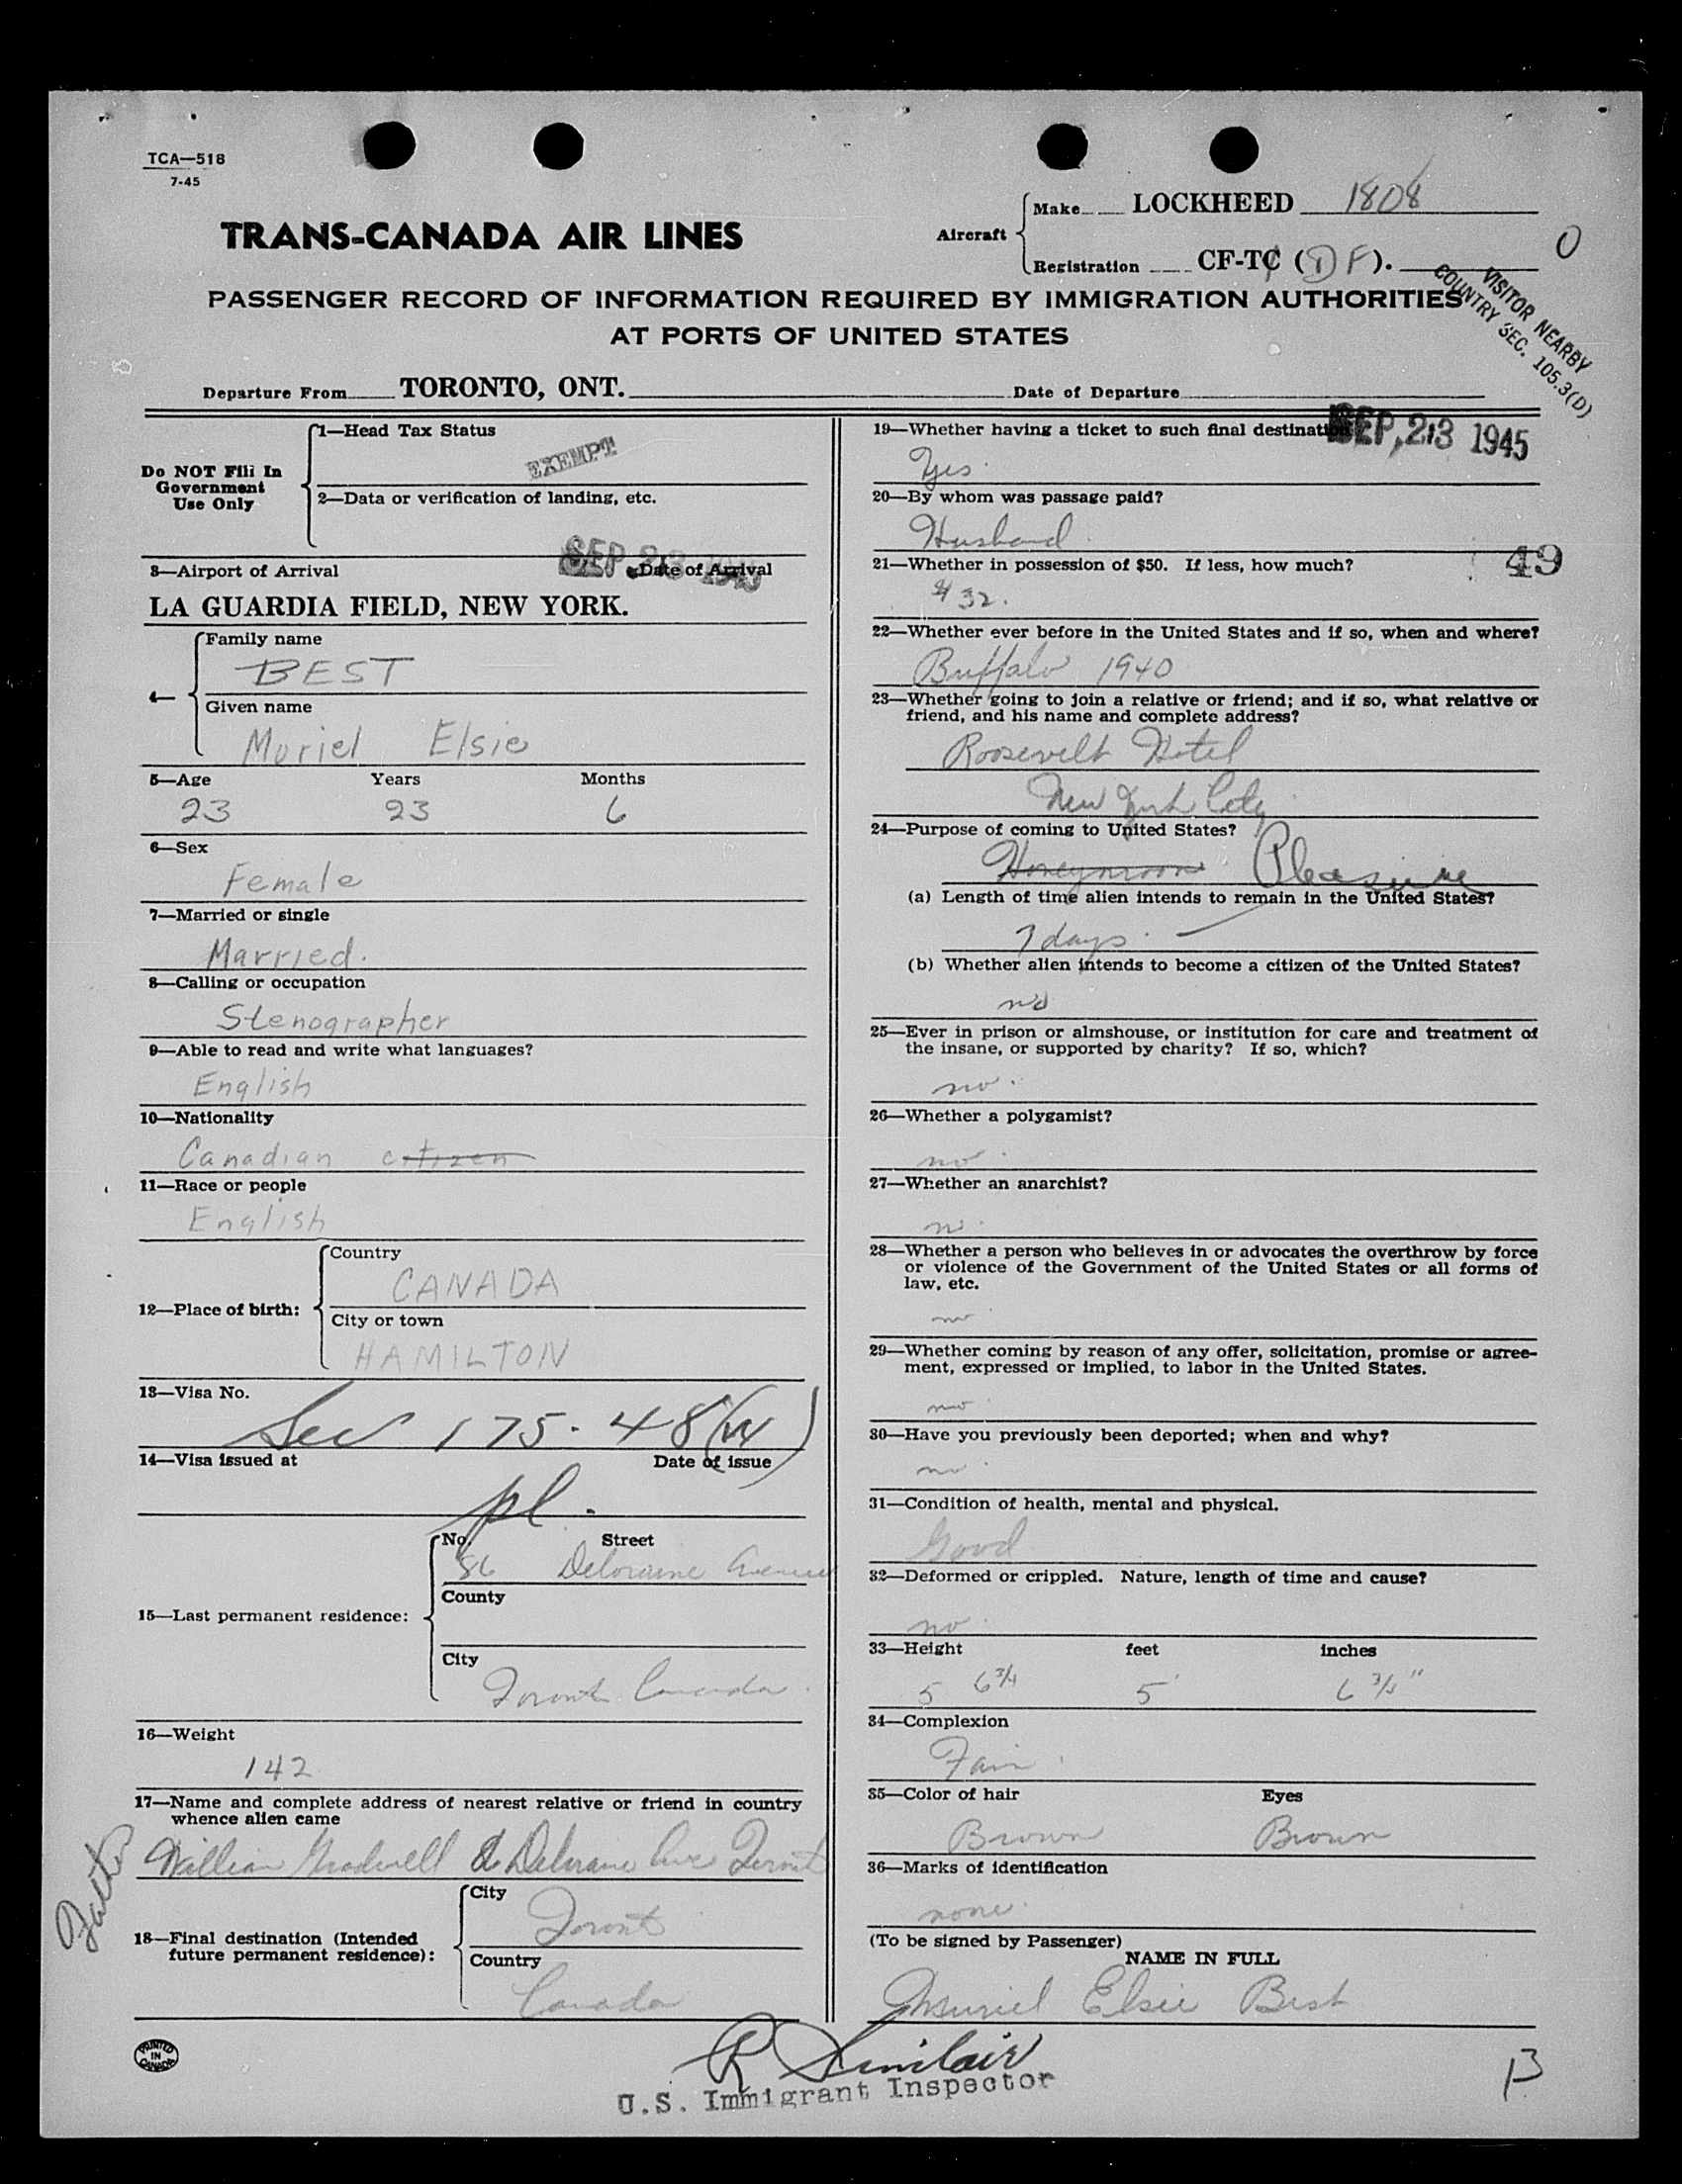 TCA—518
7-45
TRANS-CANADA AIR LINES
Aircraft
Make LOCKHEED 1808
Registration CF-TC (DF).
0
VISITOR NEARBY
COUNTRY SEC. 105.3(D)
PASSENGER RECORD OF INFORMATION REQUIRED BY IMMIGRATION AUTHORITIES
AT PORTS OF UNITED STATES
Departure From TORONTO, ONT. Date of Departure
SEP 23 1945
Do NOT Fill In
Government
Use Only
1—Head Tax Status
EXEMPT
2—Data or verification of landing, etc.
SEP 23 1945
3—Airport of Arrival Date of Arrival
LA GUARDIA FIELD, NEW YORK.
4—
Family name
BEST
Given name
Muriel Elsie
5—Age Years Months
23 23 6
6—Sex
Female
7—Married or single
Married.
8—Calling or occupation
Stenographer
9—Able to read and write what languages?
English
10—Nationality
Canadian citizen
11—Race or people
English
12—Place of birth:
Country
CANADA
City or town
HAMILTON
13—Visa No.
Sec 175.48(w)
14—Visa issued at Date of issue
pl.
15—Last permanent residence:
No. Street
86 Deloraine Avenue
County
City
Toronto Canada.
16—Weight
142
17—Name and complete address of nearest relative or friend in country
whence alien came
Father
William Deloraine Ave Toronto
18—Final destination (Intended
future permanent residence):
City
Toronto
Country
Canada
19—Whether having a ticket to such final destination
Yes.
20—By whom was passage paid?
Husband.
21—Whether in possession of $50. If less, how much?
49
$32.
22—Whether ever before in the United States and if so, when and where?
Buffalo 1940
23—Whether going to join a relative or friend; and if so, what relative or
friend, and his name and complete address?
Roosevelt Hotel
New York City
24—Purpose of coming to United States?
Honeymoon Pleasure
(a) Length of time alien intends to remain in the United States?
7 days.
(b) Whether alien intends to become a citizen of the United States?
no
25—Ever in prison or almshouse, or institution for care and treatment of
the insane, or supported by charity? If so, which?
no.
26—Whether a polygamist?
no.
27—Whether an anarchist?
no.
28—Whether a person who believes in or advocates the overthrow by force
or violence of the Government of the United States or all forms of
law, etc.
no
29—Whether coming by reason of any offer, solicitation, promise or agree-
ment, expressed or implied, to labor in the United States.
no
30—Have you previously been deported; when and why?
no.
31—Condition of health, mental and physical.
Good
32—Deformed or crippled. Nature, length of time and cause?
no.
33—Height feet inches
5 6 3/4 5' 6 3/4"
34—Complexion
Fair.
35—Color of hair Eyes
Brown Brown
36—Marks of identification
none.
(To be signed by Passenger)
NAME IN FULL
Muriel Elsie Best
PRINTED
IN
CANADA
R Sinclair
U.S. Immigrant Inspector
B